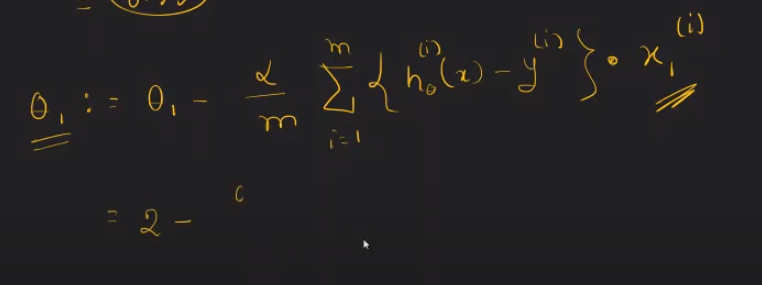 =
θ₁ := θ₁ - α/m Σ_{i=1}^{m} { h_θ^{(i)}(x) - y^{(i)} } • x₁^{(i)}
= 2 -